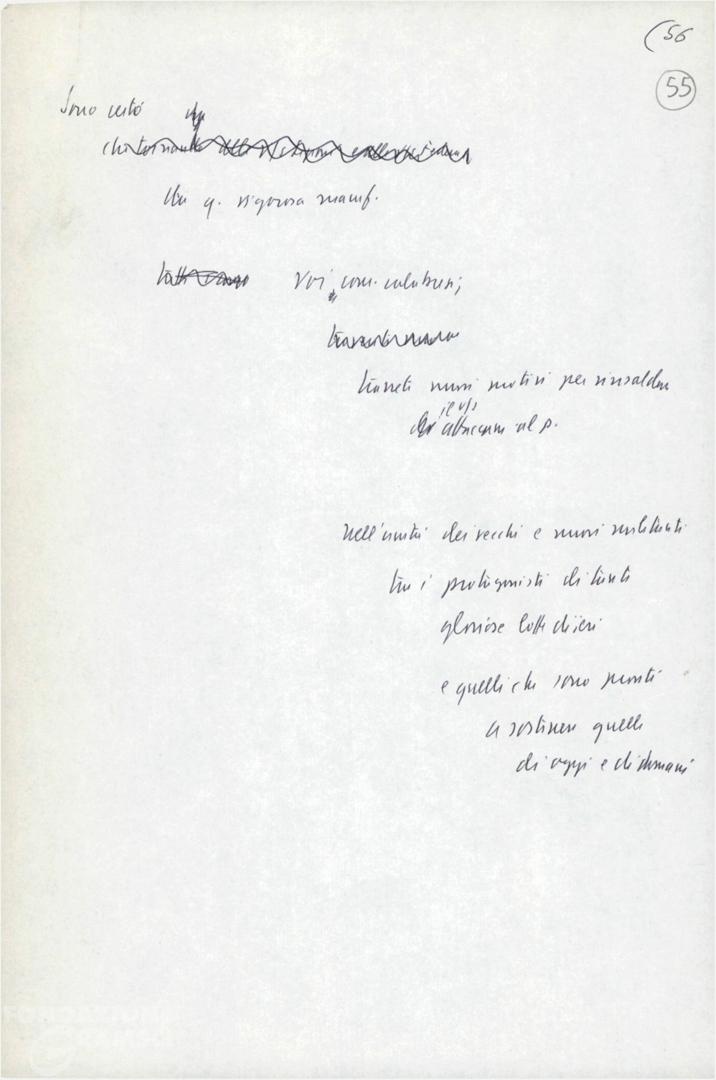 (56
55
Sono certo
che
da q. vigorosa manif.
Voi, com. calabresi,
trarrete nuovi motivi per rinsaldare
il vs
attaccam al p.
nell'unità dei vecchi e nuovi militanti
tra i protagonisti di tante
gloriose lotte di ieri
e quelli che sono pronti
a sostenere quelle
di oggi e di domani
FONDAZIONE
GRAMSCI